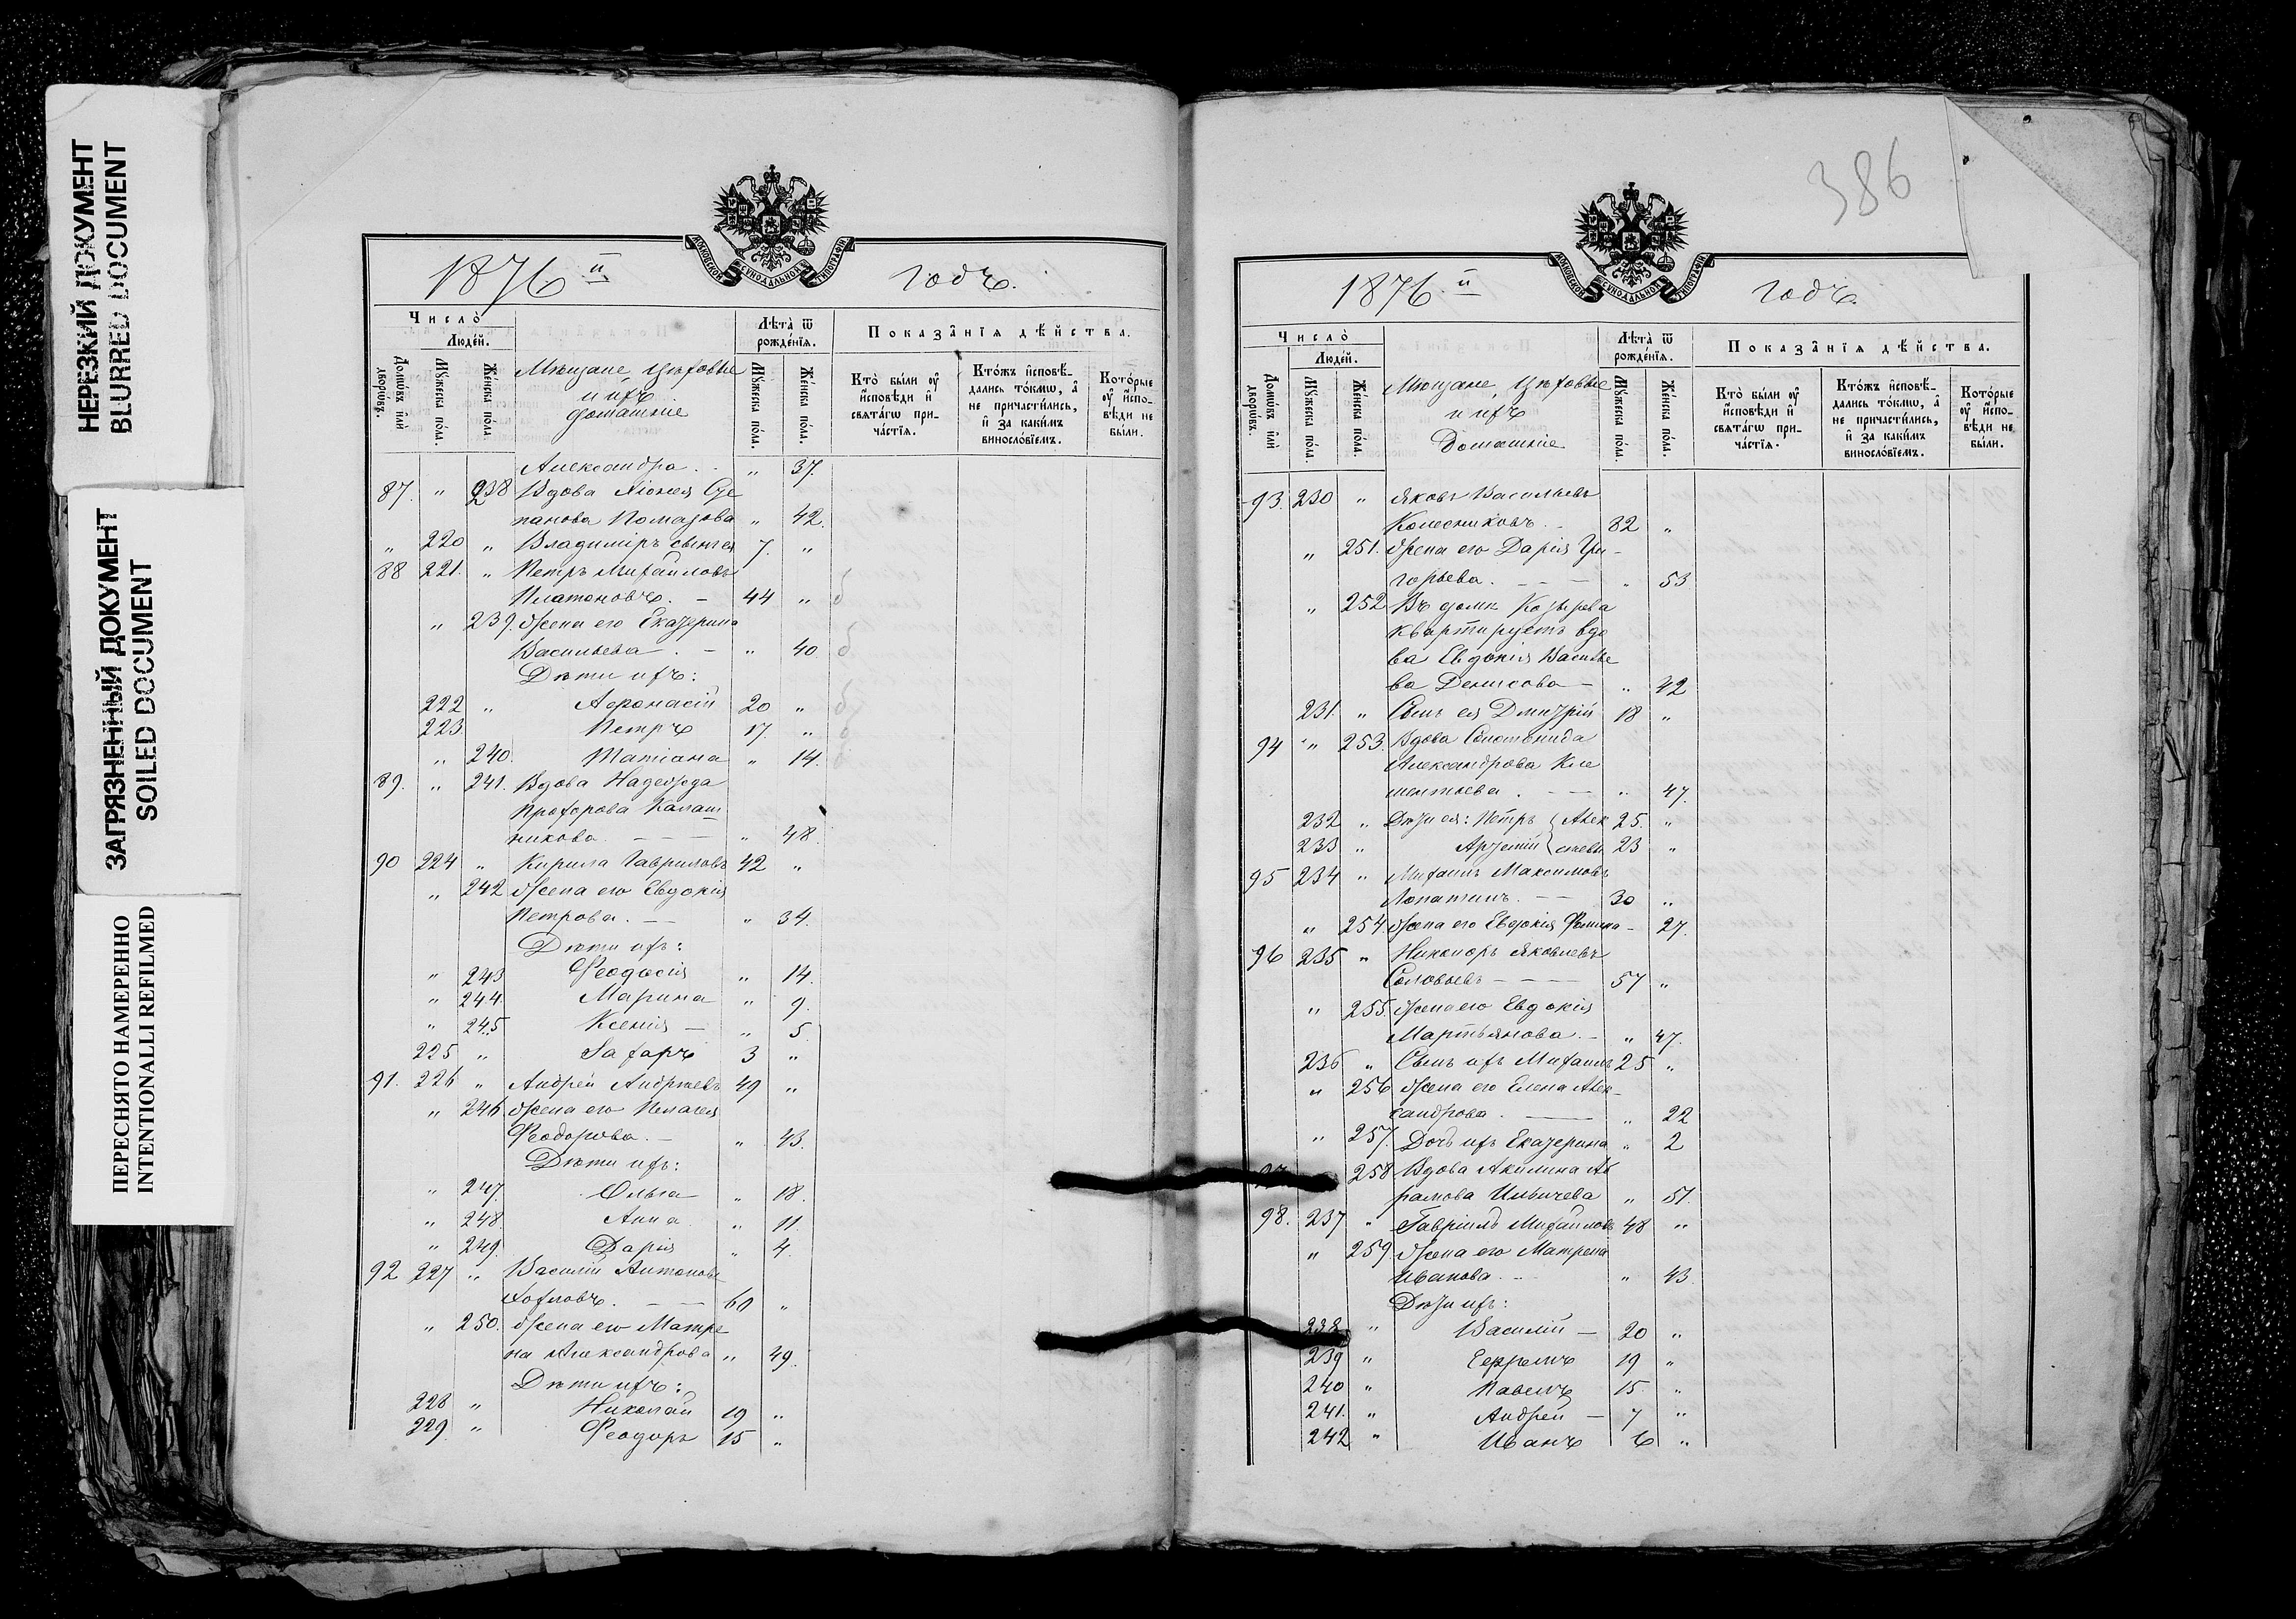 НЕРЕЗКИЙ ДОКУМЕНТ
BLURRED DOCUMENT
ЗАГРЯЗНЕННЫЙ ДОКУМЕНТ
SOILED DOCUMENT
ПЕРЕСНЯТО НАМЕРЕННО
INTENTIONALLI REFILMED
МОСКОВСКОЙ СУНОДАЛЬНОЙ ТИПОГРАФІИ
1876 й годъ.
Число̀
Людей.
Домѡвъ и҆лѝ дворѡвъ.
Мꙋжеска пола.
Женска пола.
Мѣщане, цѣховые
и ихъ
домашніе
Лѣта̀ ѿ
рожденїѧ.
Мꙋжеска пола.
Женска пола.
Показа̑нїѧ дѣйства.
Кто̀ бы́ли ᲂу҆
и҆сповѣди и҆
свѧта́гѡ при-
ча́стїѧ.
Кто́жъ и҆сповѣ-
дались то́кмѡ, а҆
не причасти́лись,
и҆ за каки́мъ
винослові́емъ.
Кото́рые
ᲂу҆ и҆спо-
вѣди не
бы́ли.
Александра . . " 37.
87. " 238 Вдова Хіонія Сте
панова Помазова " 42.
" 220 " Владиміръ сынъ ея 7. "
88 221. " Петръ Михайловъ
Платоновъ. - 44 "
" 239. Жена его Екатерина
Васильева . - " 40.
Дѣти ихъ:
222 " Афонасій 20 "
223. Петръ 17. "
" 240. Татіана " 14.
89. " 241. Вдова Надежда
Прохорова Калаш
никова. - - - " 48.
90 224 " Кирила Гавриловъ 42 "
" 242 Жена его Евдокія
Петрова. - - " 34.
Дѣти ихъ:
" 243 Феодосія " 14.
" 244. Марина " 9.
" 245 Ксенія - " 5.
225 " Захаръ 3 "
91. 226 " Андрей Андреевъ 49 "
" 246. Жена его Пелагея
Феодорова. - " 43.
Дѣти ихъ:
" 247. Ольга " 18.
" 248. Анна " 11.
" 249. Дарія " 4.
92 227 " Василій Антоновъ
Хохловъ. - - 60 "
" 250. Жена его Матре
на Александрова " 49.
Дѣти ихъ:
228 " Николай 19 "
229. " Феодоръ 15 "
386
МОСКОВСКОЙ СУНОДАЛЬНОЙ ТИПОГРАФІИ
1876 й годъ.
Число̀
Людей.
Домѡвъ и҆лѝ дворѡвъ.
Мꙋжеска пола.
Женска пола.
Мѣщане, цѣховые
и ихъ
Домашніе
Лѣта̀ ѿ
рожденїѧ.
Мꙋжеска пола.
Женска пола.
Показа̑нїѧ дѣйства.
Кто̀ бы́ли ᲂу҆
и҆сповѣди и҆
свѧта́гѡ при-
ча́стїѧ.
Кто́жъ и҆сповѣ-
дались то́кмѡ, а҆
не причасти́лись,
и҆ за каки́мъ
винослові́емъ.
Кото́рые
ᲂу҆ и҆спо-
вѣди не
бы́ли.
93. 230 " Яковъ Васильевъ
Колесниковъ. - 82 "
" 251. Жена его Дарія Гри-
горьева. - - - " 53
" 252 Въ домѣ Козырева
квартируетъ вдо
ва Евдокія Василье
ва Денисова - " 42
231. " Сынъ ея Дмитрій 18 "
94 " 253. Вдова
Александрова Кле
ментьева . - - " 47.
232 " Дѣти ея: Петръ { Алек 25. "
233 " Артемій { сѣевы 23 "
95 234 " Михаилъ Максимовъ
Лопатинъ. - - 30 "
" 254. Жена его Евдокія Фомина - 27.
96 235 " Никаноръ Яковлевъ
Соловьевъ - - - 57 "
" 255. Жена его Евдокія
Мартьянова. - " 47.
236 " Сынъ ихъ Михаилъ 25 "
" 256 Жена его Елена Алек-
сандрова. - " 22
" 257. Дочь ихъ Екатерина " 2
258 Вдова Акилина Аб
рамова Ильичева " 51.
98. 237 " Гавріилъ Михайловъ 48 "
" 259. Жена его Матрена
Иванова. - - " 43.
Дѣти ихъ:
238 " Василій - 20 "
239 " Ефремъ 19 "
240 " Павелъ 15. "
241. " Андрей - 7 "
242 " Иванъ 6 "